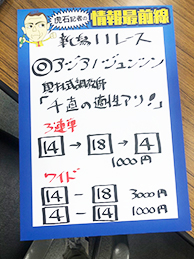 虎石記者の
情報最前線
新潟11レース
◎アジアノジュンシン
「千直の適性アリ!」
3連単
14 → 18 → 4
1000円
ワイド
14 - 18 3000円
4 - 14 1000円